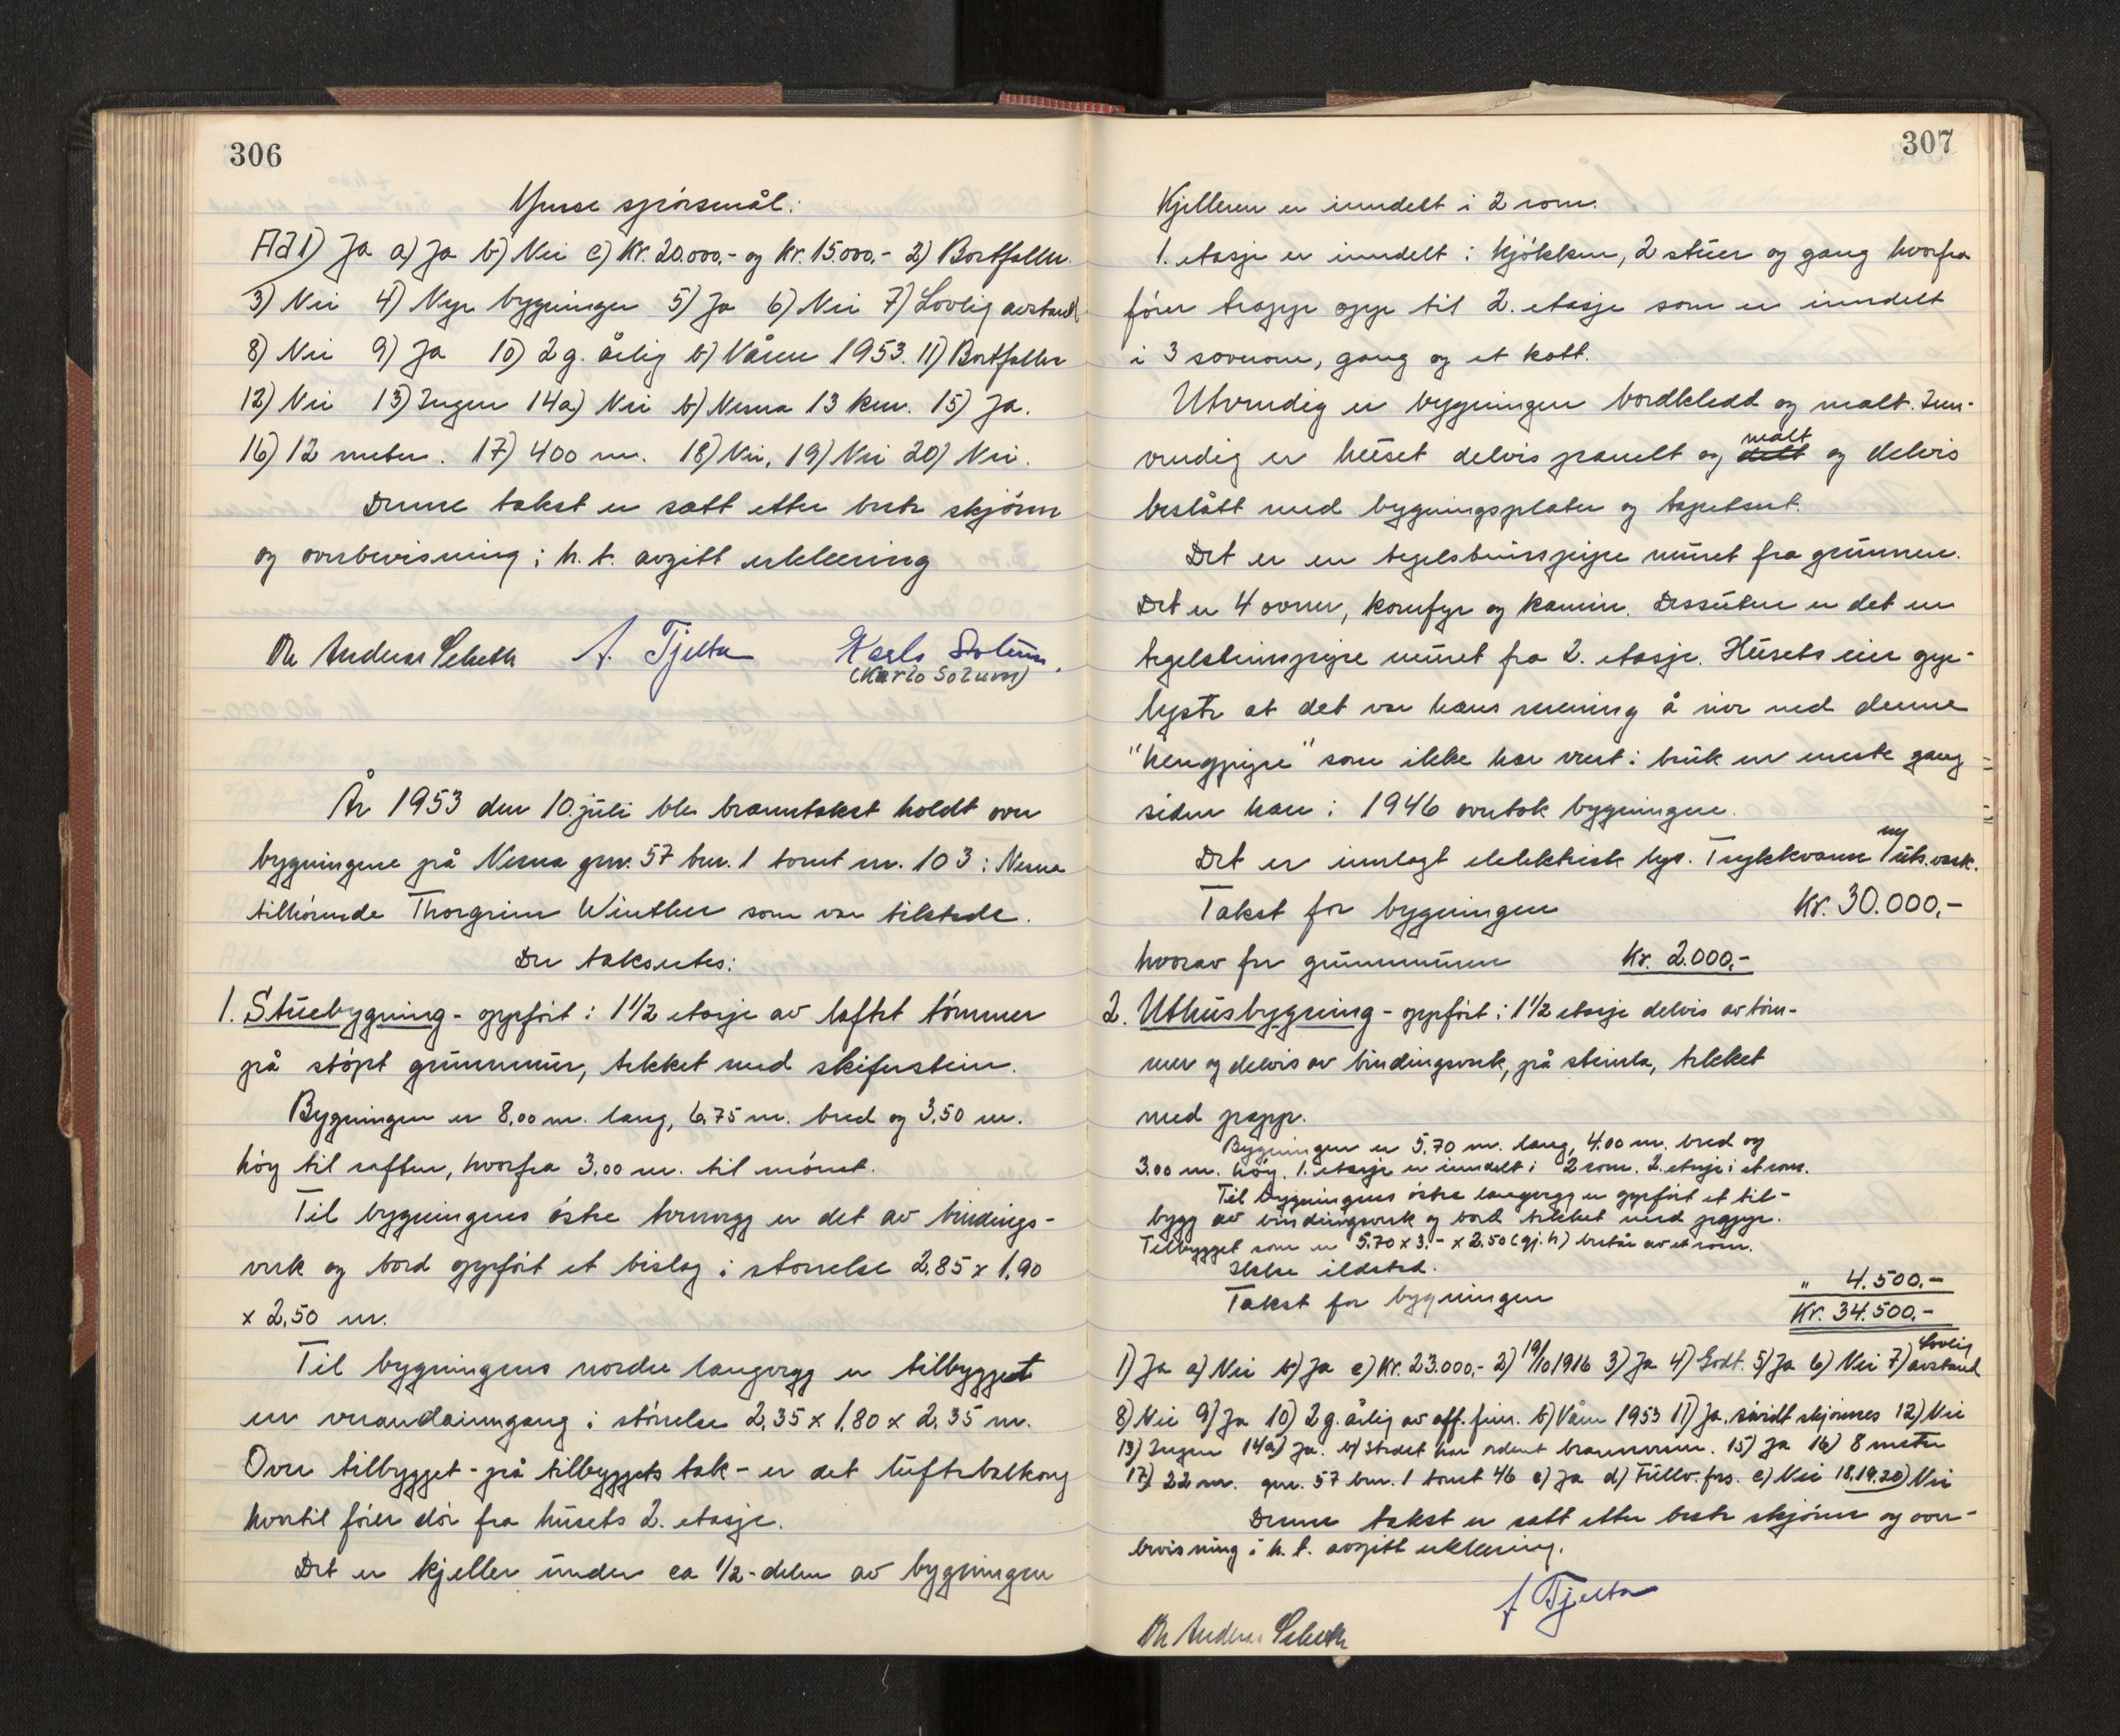 306
Ymse spörsmål:
Ad 1) Ja a) Ja b) Nei c) Kr. 20.000,- og Kr. 15.000,- 2) Bortfaller.
3) Nei 4) Nye bygninger 5) Ja 6) Nei 7) Lovlig avstand
8) Nei 9) Ja 10) 2 g. årlig b) Våren 1953. 11) Bortfaller
12) Nei 13) Ingen 14a) Nei b) Nesna 13 km. 15) Ja.
16) 12 meter. 17) 400 m. 18) Nei, 19) Nei 20) Nei.
Denne takst er satt etter beste skjönn
og overbevisning i h. t. avgitt erklæring
A. Tjelta
Karlo Solum
(Karlo Solum)
År 1953 den 10. juli ble branntakst holdt over
bygningene på Nesna gnr. 57 bnr. 1 tomt nr. 103 i Nesna
tilhörende Thorgrim Winther som var tilstede.
Der takseres:
1. Stuebygning - oppfört i 1 1/2 etasje av laftet tömmer
på stöpt grunnmur, tekket med skiferstein.
Bygningen er 8,00 m. lang, 6,75 m. bred og 3,50 m.
höy til raften, hvorfra 3,00 m. til mönet.
Til bygningens östre tverrvegg er det av bindings-
verk og bord oppfört et bislag i storrelse 2,85 x 1,90
x 2,50 m.
Til bygningens nordre langvegg er tilbygget
en verandainngang i störrelse 2,35 x 1,80 x 2,35 m.
Over tilbygget - på tilbyggets tak - er det luftebalkong
hvortil förer dör fra husets 2. etasje.
Det er kjeller under ca 1/2-delen av bygningen
307
Kjelleren er inndelt i 2 rom.
1. etasje er inndelt i kjökken, 2 stuer og gang hvorfra
förer trapp opp til 2. etasje som er inndelt
i 3 soverom, gang og et kott.
Utvendig er bygningen bordkledd og malt. Inn-
vendig er huset delvis panelt og malt og delvis
beslått med bygningsplater og tapetsert.
Det er en teglsteinspipe muret fra grunnen.
Det er 4 ovner, komfyr og kamin. Dessuten er det en
teglsteinspipe muret fra 2. etasje. Husets eier opp-
lyste at det var hans mening å rive ned denne
"hengpipe" som ikke har vært i bruk en eneste gang
siden han i 1946 overtok bygningen.
Det er innlagt elektrisk lys. Trykkvann ny utv. vask.
Takst for bygningen Kr. 30.000,-
hvorav for grunnmuren Kr. 2.000,-
2. Uthusbygning - oppfört i 1 1/2 etasje delvis av töm-
mer og delvis av bindingsverk, på steinla, tekket
med papp.
Bygningen er 5,70 m. lang, 4,00 m. bred og
3,00 m. höy. 1. etasje er inndelt i 2 rom. 2. etasje i et rom.
Til bygningens östre langvegg er oppfört et til-
bygg av bindingsverk og bord tekket med papp.
Tilbygget som er 5,70 x 3,- x 2,50 (gj. h) består av et rom.
Ikke ildsted.
Takst for bygningen " 4.500,-
Kr. 34.500,-
1) Ja a) Nei b) Ja c) Kr. 23.000,- 2) 19/10 1916 3) Ja 4) Godt. 5) Ja 6) Nei 7) Lovlig avstand
8) Nei 9) Ja 10) 2 g. årlig av off. feier. b) Våren 1953 11) Ja, såvidt skjönnes 12) Nei
13) Ingen 14a) Ja. b) Stedet har ordent brannvesen. 15) Ja 16) 8 meter
17) 22 m. gnr. 57 bnr. 1 tomt 46 c) Ja d) Fullv. frs. e) Nei 18,19,20) Nei
Denne takst er satt etter beste skjönn og over-
bevisning i h. t. avgitt erklæring.
A Tjelta